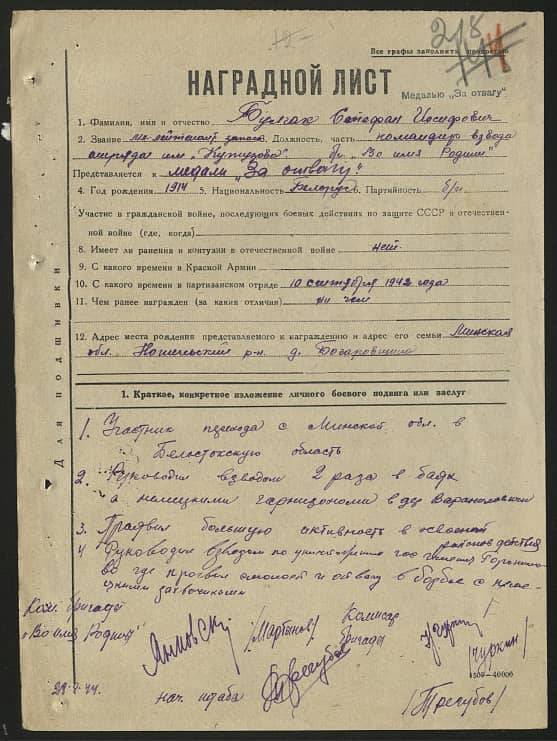 Все графы заполнять
НАГРАДНОЙ ЛИСТ
Медалью „За отвагу"
1. Фамилия, имя и отчество Булгак Стефан Иосифович
2. Звание мл. лейтенант запаса Должность, часть командир взвода
отряда им „Кутузова" бр. „Во имя Родины"
Представляется к медали „За отвагу"
4. Год рождения 1914 5. Национальность Белорус 6. Партийность б/п
Участие в гражданской войне, последующих боевых действиях по защите СССР и отечествен-
ной войне (где, когда)
8. Имеет ли ранения и контузии в отечественной войне нет
9. С какого времени в Красной Армии
10. С какого времени в партизанском отряде 10 сентября 1942 года
11. Чем ранее награжден (за какия отличия) ни чем
12. Адрес места рождения представляемого к награждению и адрес его семьи Минская
обл. р-н д.
Для подшивки
1. Краткое, конкретное изложение личного боевого подвига или заслуг
1. Участник перехода с Минской обл. в
Белостокскую область
2. Руководил взводом 2 раза в боях
с немецкими гарнизонами в
3. Проявил большую активность в районов действия
4 Руководил взводом по
где проявил и отвагу в борьбе с неме-
цкими захвачиками
Ком. бригады
„Во имя Родины"
Янковский /Мартынов/ Комиссар
бригады
/Чуркин/
нач. штаба
/Трегубов/